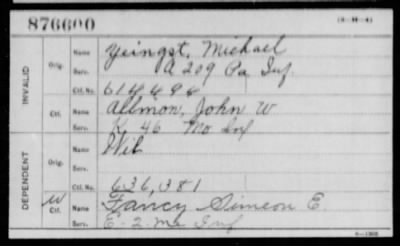 876600
(3-M-4)
INVALID
Orig. Name Yeingst, Michael
Serv. A 209 Pa Inf.
Ctf. No. 614494
Ctf. Name Allmon, John W
Serv. K 46 Mo Inf
DEPENDENT
Orig. Name Wit
Serv.
Ctf. No. 636,381
W Ctf. Name Fancy Simeon E
Serv. E-2-Me Inf